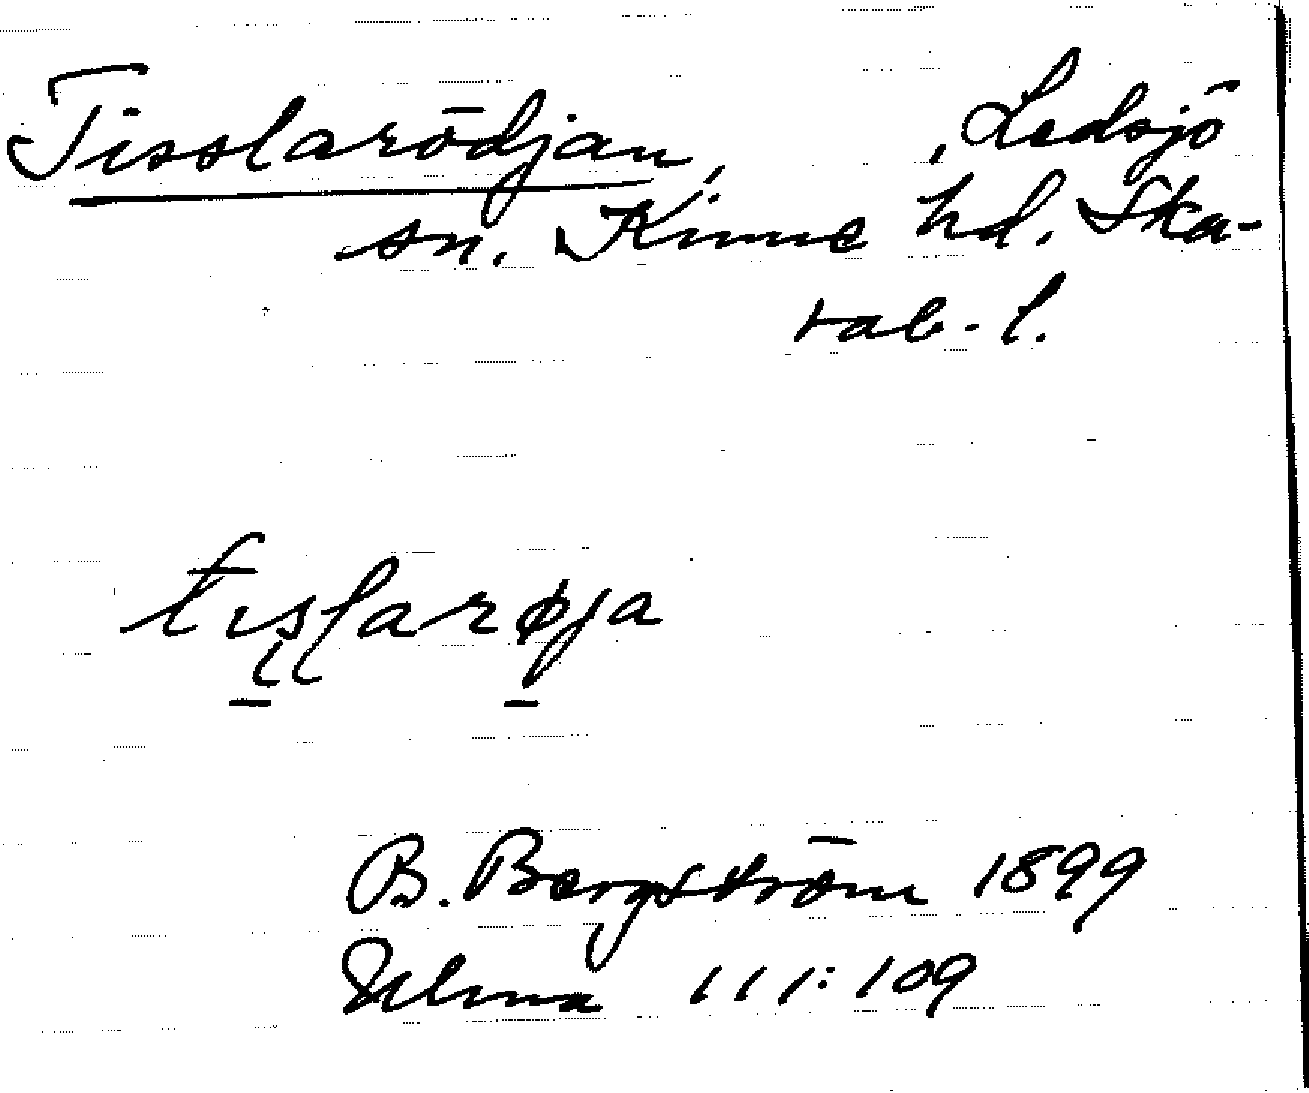 Tisslarödjan, , Ledsjö
sn. Kinne hd. Ska-
rab. l.
tıslarøja
B. Bergström 1899
Ulma 111:109